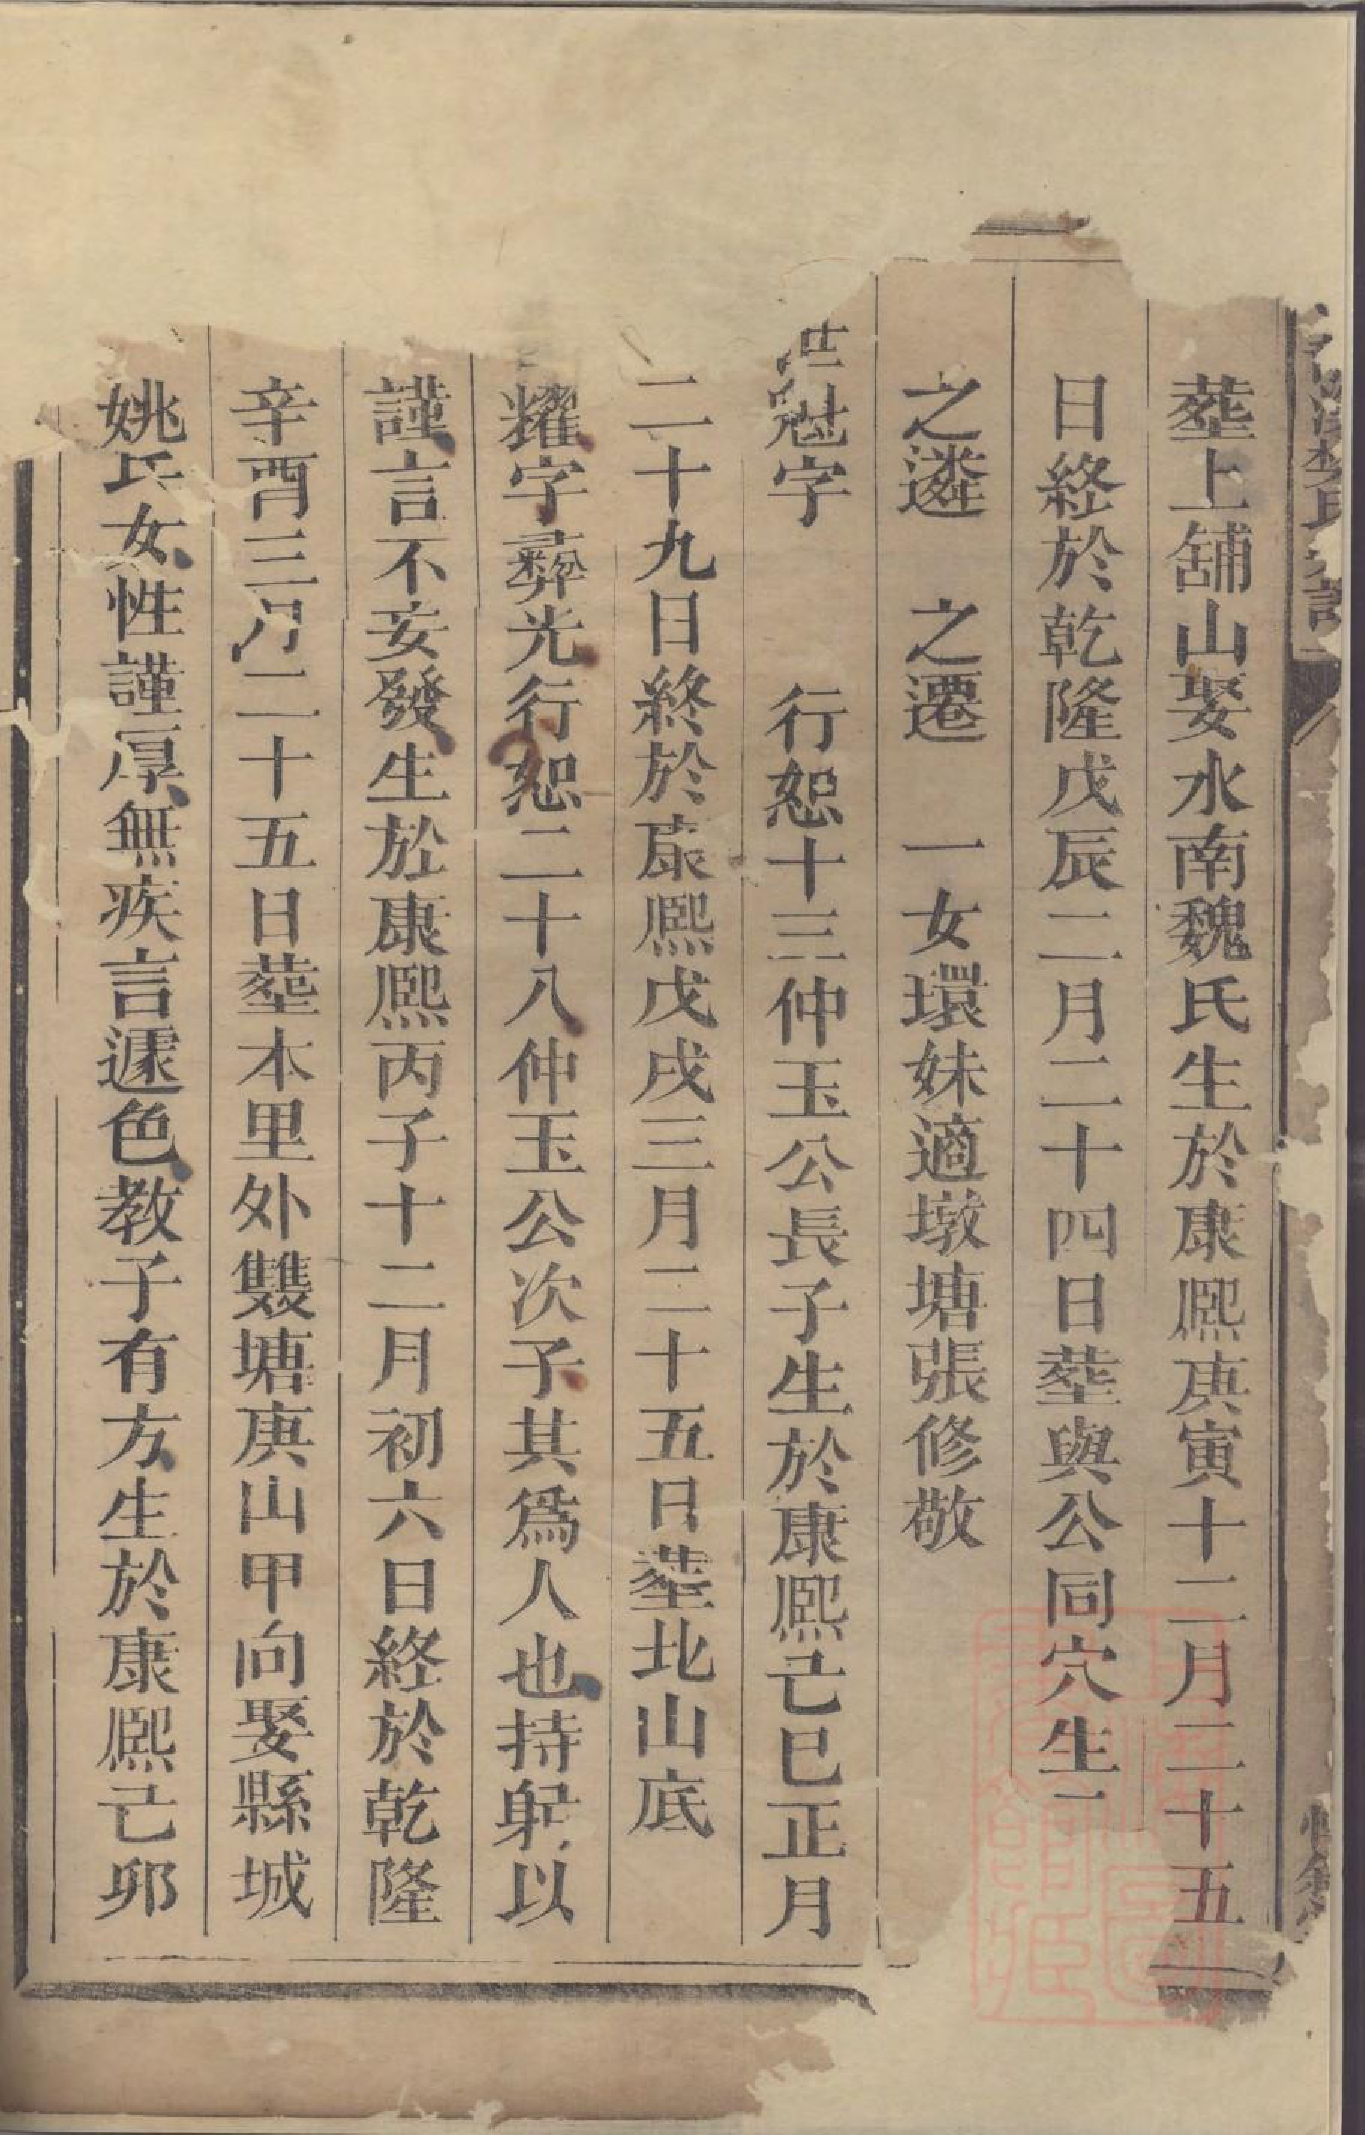 塟上舖山娶水南魏氏生於康熙庚寅十二月二十五
日終於乾隆戊辰二月二十四日塟與公同穴生二
之遴　之遷　一女環妹適墩塘張修敬
世冠字　　行恕十三仲玉公長子生於康熙己巳正月
二十九日終於康熙戊戌三月二十五日塟北山底
耀字彞光行恕二十八仲玉公次子其爲人也持躬以
謹言不妄發生於康熙丙子十二月初六日終於乾隆
辛酉三月二十五日塟本里外雙塘庚山甲向娶縣城
姚氏女性謹厚無疾言遽色教子有方生於康熙己卯